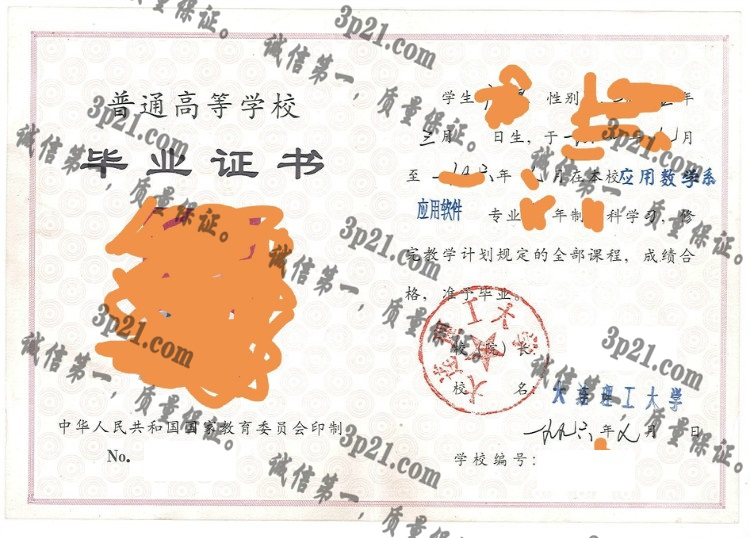 普通高等学校
毕业证书
中华人民共和国国家教育委员会印制
No.
学生 性别 年
三月 日生，于 年 月
至一九九六年 月在本校应用数学系
应用软件 专业 年制 科学习，修
完教学计划规定的全部课程，成绩合
格，准予毕业。
校（院）长
校 名：大连理工大学
一九九六年 月 日
学校编号：
大连理工大学
3p21.com
诚信第一，质量保证。
3p21.com
诚信第一，质量保证。
3p21.com
诚信第一，质量保证。
3p21.com
诚信第一，质量保证。
3p21.com
诚信第一，质量保证。
3p21.com
诚信第一，质量保证。
3p21.com
诚信第一，质量保证。